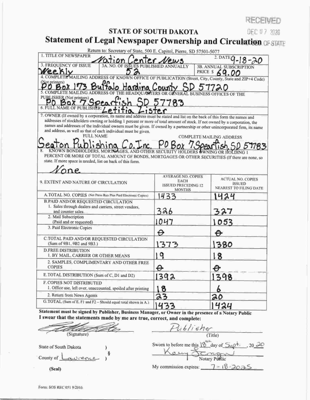 RECEIVED
DEC 07 2020
S.D. SEC. OF STATE
STATE OF SOUTH DAKOTA
Statement of Legal Newspaper Ownership and Circulation
Return to: Secretary of State, 500 E. Capitol, Pierre, SD 57501-5077
1. TITLE OF NEWSPAPER Nation Center News
2. DATE 9-18-20
3. FREQUENCY OF ISSUE Weekly
3A. NO. OF ISSUES PUBLISHED ANNUALLY 52
3B. ANNUAL SUBSCRIPTION PRICE $ 69.00
4. COMPLETE MAILING ADDRESS OF KNOWN OFFICE OF PUBLICATION (Street, City, County, State and ZIP+4 Code)
PO Box 173 Buffalo Harding County SD 57720
5. COMPLETE MAILING ADDRESS OF THE HEADQUARTERS OR GENERAL BUSINESS OFFICES OF THE
PO Box 7 Spearfish SD 57783
6. FULL NAME OF PUBLISHER Letitia Lister
7. OWNER (If owned by a corporation, its name and address must be stated and list on the back of this form the names and
addresses of stockholders owning or holding 1 percent or more of total amount of stock. If not owned by a corporation, the
names and addresses of the individual owners must be given. If owned by a partnership or other unincorporated firm, its name
and address, as well as that of each individual must be given).
FULL NAME COMPLETE MAILING ADDRESS
Seaton Publishing Co, Inc. PO Box 7 Spearfish SD 57783
8. KNOWN BONDHOLDERS, MORTGAGES, AND OTHER SECURITY HOLDERS OWNING OR HOLDING 1
PERCENT OR MORE OF TOTAL AMOUNT OF BONDS, MORTGAGES OR OTHER SECURITIES (If there are none, so
state. If more space is needed, list on back of this form.
None
9. EXTENT AND NATURE OF CIRCULATION
AVERAGE NO. COPIES EACH ISSUED PRECEDING 12 MONTHS
ACTUAL NO. COPIES ISSUED NEAREST TO FILING DATE
A. TOTAL NO. COPIES 1433 1424
B. PAID AND/OR REQUESTED CIRCULATION
1. Sales through dealers and carriers, street vendors, and counter sales 326 327
2. Mail Subscription (Paid and or requested) 1047 1053
3. Paid Electronic Copies 0 0
C. TOTAL PAID AND/OR REQUESTED CIRCULATION (Sum of 9B1, 9B2 and 9B3) 1373 1380
D. FREE DISTRIBUTION
1. BY MAIL, CARRIER OR OTHER MEANS 19 18
2. SAMPLES, COMPLIMENTARY AND OTHER FREE COPIES 0 0
E. TOTAL DISTRIBUTION (Sum of C, D1 and D2) 1392 1398
F. COPIES NOT DISTRIBUTED
1. Office use, left over, unaccounted, spoiled after printing 18 6
2. Return from News Agents 23 20
G. TOTAL (Sum of E, F1 and F2 - Should equal total shown in A.) 1433 1424
Statement must be signed by Publisher, Business Manager, or Owner in the presence of a Notary Public
I swear that the statements made by me are true, correct, and complete:
Publisher
(Signature) (Title)
State of South Dakota )
Sworn to before me this 18th day of Sept, 2020
County of Lawrence )
Notary Public
(Seal) My commission expires: 7-18-2025